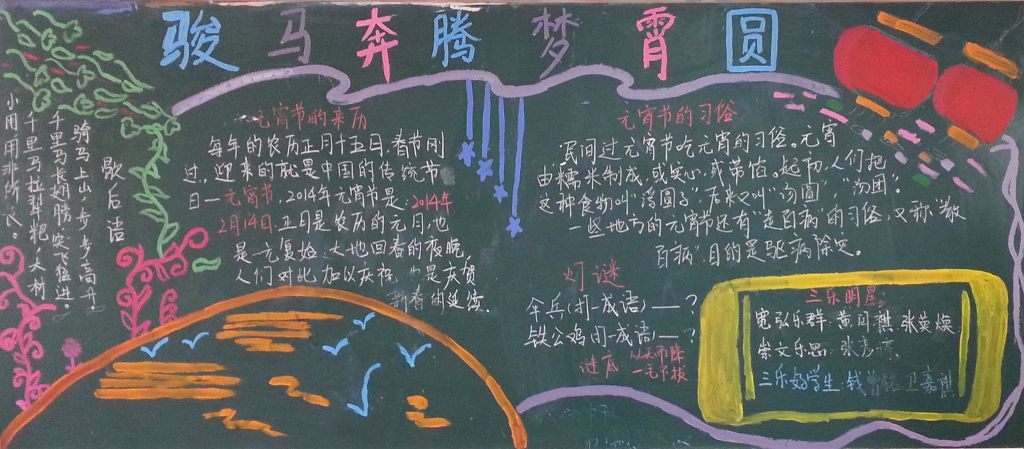 骏马奔腾梦霄圆
歇后语
骑马上山，步步高升。
千里马长翅膀，突飞猛进。
千里马拉犁耙，大材
小用，用非所长。
元宵节的来历
每年的农历正月十五日，春节刚
过，迎来的就是中国的传统节
日—元宵节，2014年元宵节是：2014年
2月14日，正月是农历的元月，也
是一元复始，大地回春的夜晚，
人们对此加以庆祝，也是庆贺
新春的延续。
元宵节的习俗
民间过元宵节吃元宵的习俗。元宵
由糯米制成，或实心，或带馅。起初，人们把
这种食物叫“浮圆子”，后来又叫“汤圆”、“汤团”。
一些地方的元宵节还有“走百病”的习俗，又称“散
百病”，目的是驱病除灾。
灯谜
伞兵（打一成语）—？
铁公鸡（打一成语）—？
谜底 从天而降
一毛不拔
三乐明星。
宽弘乐群：黄国 张
崇文乐思：张彦
三乐好学生：钱曾 卫嘉